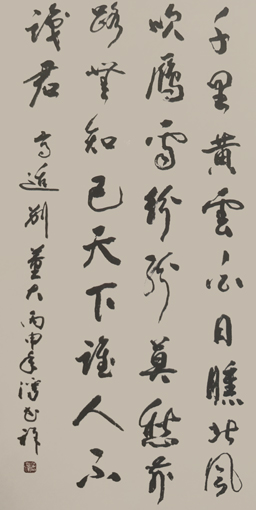 千里黃雲白日曛北風
吹鴈雪紛紛莫愁前
路無知己天下誰人不
識君
高適別董大丙申年